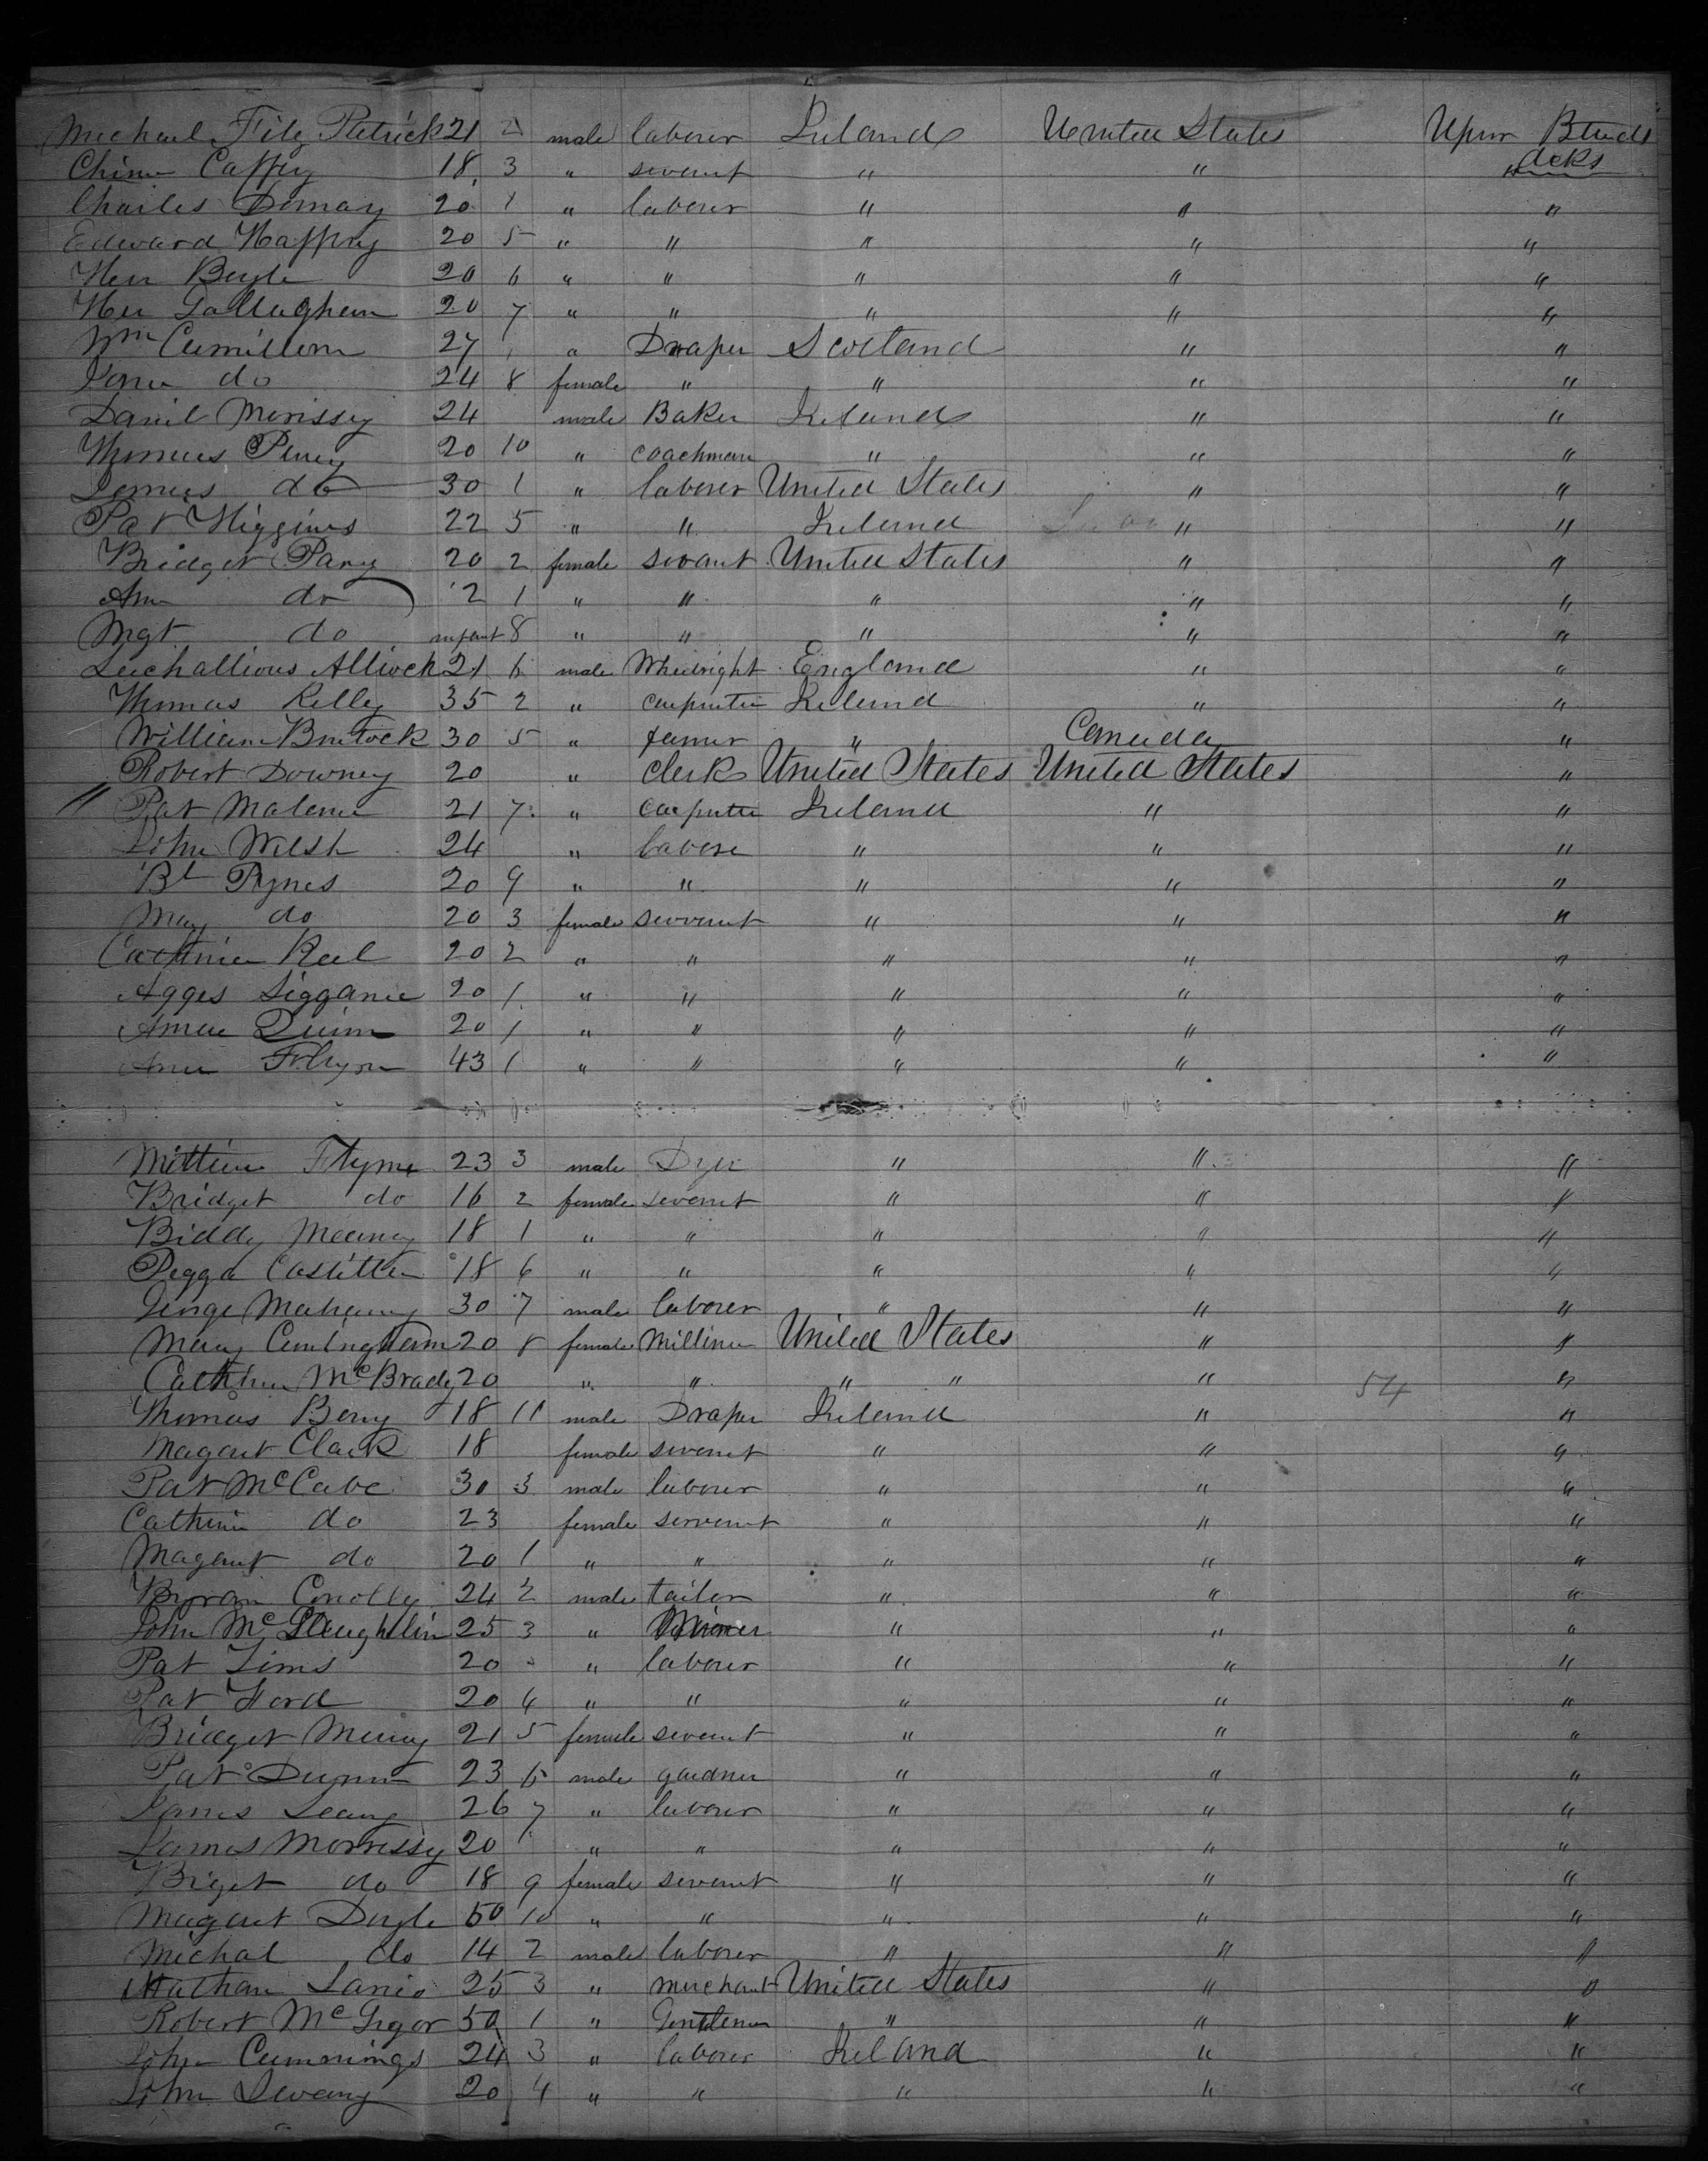 Michael Fitz Patrick 21 2 male laborer Ireland United States Uper Btwds
Caffry 18 3 " servent " " dcks
Charles Dornay 20 1 " laborer " " "
Edward Haffry 20 5 " " " " "
Hen Boyle 20 6 " " " " "
Hen Gallaghan 20 7 " " " " "
Wm Camillom 27 " Draper Scotland " "
Jane do 24 8 female " " " "
Daniel Morissey 24 male Baker Ireland " "
Thomas 20 10 " coachman " " "
James do 30 1 " laborer United States " "
Pat Higgins 22 5 " " Ireland " "
Bridget Parry 20 2 female servant United States " "
Ann do 2 1 " " " " "
Mgt do infant 8 " " " " "
21 6 male Wheelright England " "
Thomas Kelly 35 2 " carpenter Ireland " "
William 30 5 " farmer " Canada "
Robert Downey 20 " Clerk United States United States "
" Pat Malone 21 7 " carpenter Ireland " "
John Welsh 24 " labore " " "
Bt Pynes 20 9 " " " " "
May do 20 3 female servent " " "
Reel 20 2 " " " " "
Agges 20 1 " " " " "
Quinn 20 1 " " " " "
43 1 " " " " "
23 3 male Dyer " " "
Bridget do 16 2 female servent " " "
Biddy Meaney 18 1 " " " " "
Pegga 18 6 " " " " "
Mahaney 30 7 male laborer " " "
Mary Cuningham 20 8 female Milliner United States " "
McBrady 20 " " " " " 54 "
Thomas Berry 18 11 male Draper Ireland " "
Magart Clark 18 female servent " " "
Pat McCabe 30 3 male laborer " " "
Catherin do 23 female servent " " "
Magart do 20 1 " " " " "
Conolly 24 2 male tailor " " "
John McLaughlin 25 3 " Miner " " "
Pat Tims 20 " laborer " " "
Pat Ford 20 4 " " " " "
Bridget 21 5 female servent " " "
Pat Dunn 23 6 male gardner " " "
James Leary 26 7 " laborer " " "
James Morrissy 20 " " " " "
Briget do 18 9 female servent " " "
Magart Doyle 50 10 " " " " "
Michal do 14 2 male laborer " " "
Nathan 25 3 " merchant United States " "
Robert McGregor 50 1 " Gentleman " " "
John Cummings 24 3 " laborer Ireland " "
John 20 4 " " " " "